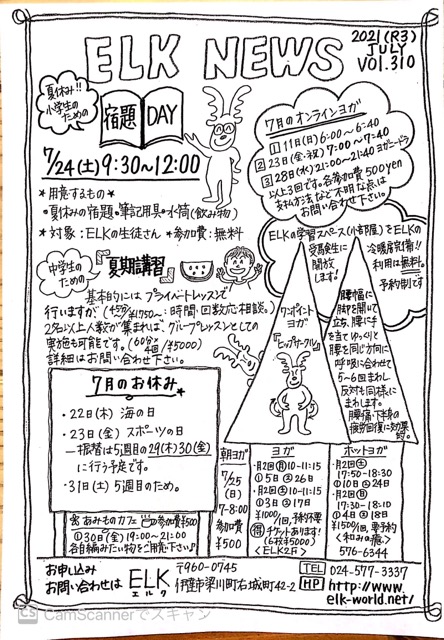 ELK NEWS
2021(R3)
JULY
VOl.310
夏休み!!
小学生の
ための
宿題 DAY
7/24(土)9:30~12:00
*用意するもの*
・夏休みの宿題・筆記用具・水筒(飲み物)
*対象:ELKの生徒さん *参加費:無料
7月のオンラインヨガ
①11日(日)6:00~6:40
②23日(金・祝)7:00~7:40
③28日(水)21:00~21:40ヨガニードラ
以上3回です。各参加費500yen
支払方法など不明な点は
お問い合わせ下さい。
ELKの学習スペース(小部屋)をELKの
受験生に
開放
します!
冷暖房完備!!
利用は無料。
予約制です
中学生の
ための
『夏期講習』
基本的にはプライベートレッスンで
行いますが、(45分/¥1750~:時間・回数応相談。)
2名以上人数が集まれば、グループレッスンとしての
実施も可能です。(60分×4回/¥5000)
詳細はお問い合わせ下さい。
ワンポイント
ヨガ
『ヒップサークル』
腰幅に
脚を開いて
立ち、腰に手
を当てゆっくりと
腰を同じ方向に
呼吸に合わせて
5~6回まわし
反対も同様に
まわします。
腰痛・下半身の
疲労回復に効果的。
7月のお休み
・22日(木) 海の日
・23日(金) スポーツの日
─振替は5週目の29(木)30(金)
に行う予定です。
・31日(土) 5週目のため。
あみものカフェ 参加費¥500
①30日(金)19:00~21:00
各自編みたい物をご用意下さい♪
朝ヨガ
7/25
(日)
7-8:00
参加費
¥500
ヨガ
・月2回(月)10-11:15
①5日②26日
・月2回(土)10-11:15
①3日②17日
¥1000/1回,予約不要
得チケットあります!
(6枚¥5000)
<ELK2F>
ホットヨガ
・月2回(土)
17:50-18:30
①10日②24日
・月2回(日)
17:30-18:10
①4日②18日
¥1500/1回,要予約
<和みの癒>
576-6344
お申し込み
お問い合わせは
ELK
エルク
〒960-0745
伊達市梁川町右城町42-2
TEL 024-577-3337
HP http://www.
elk-world.net/
CS CamScannerでスキャン